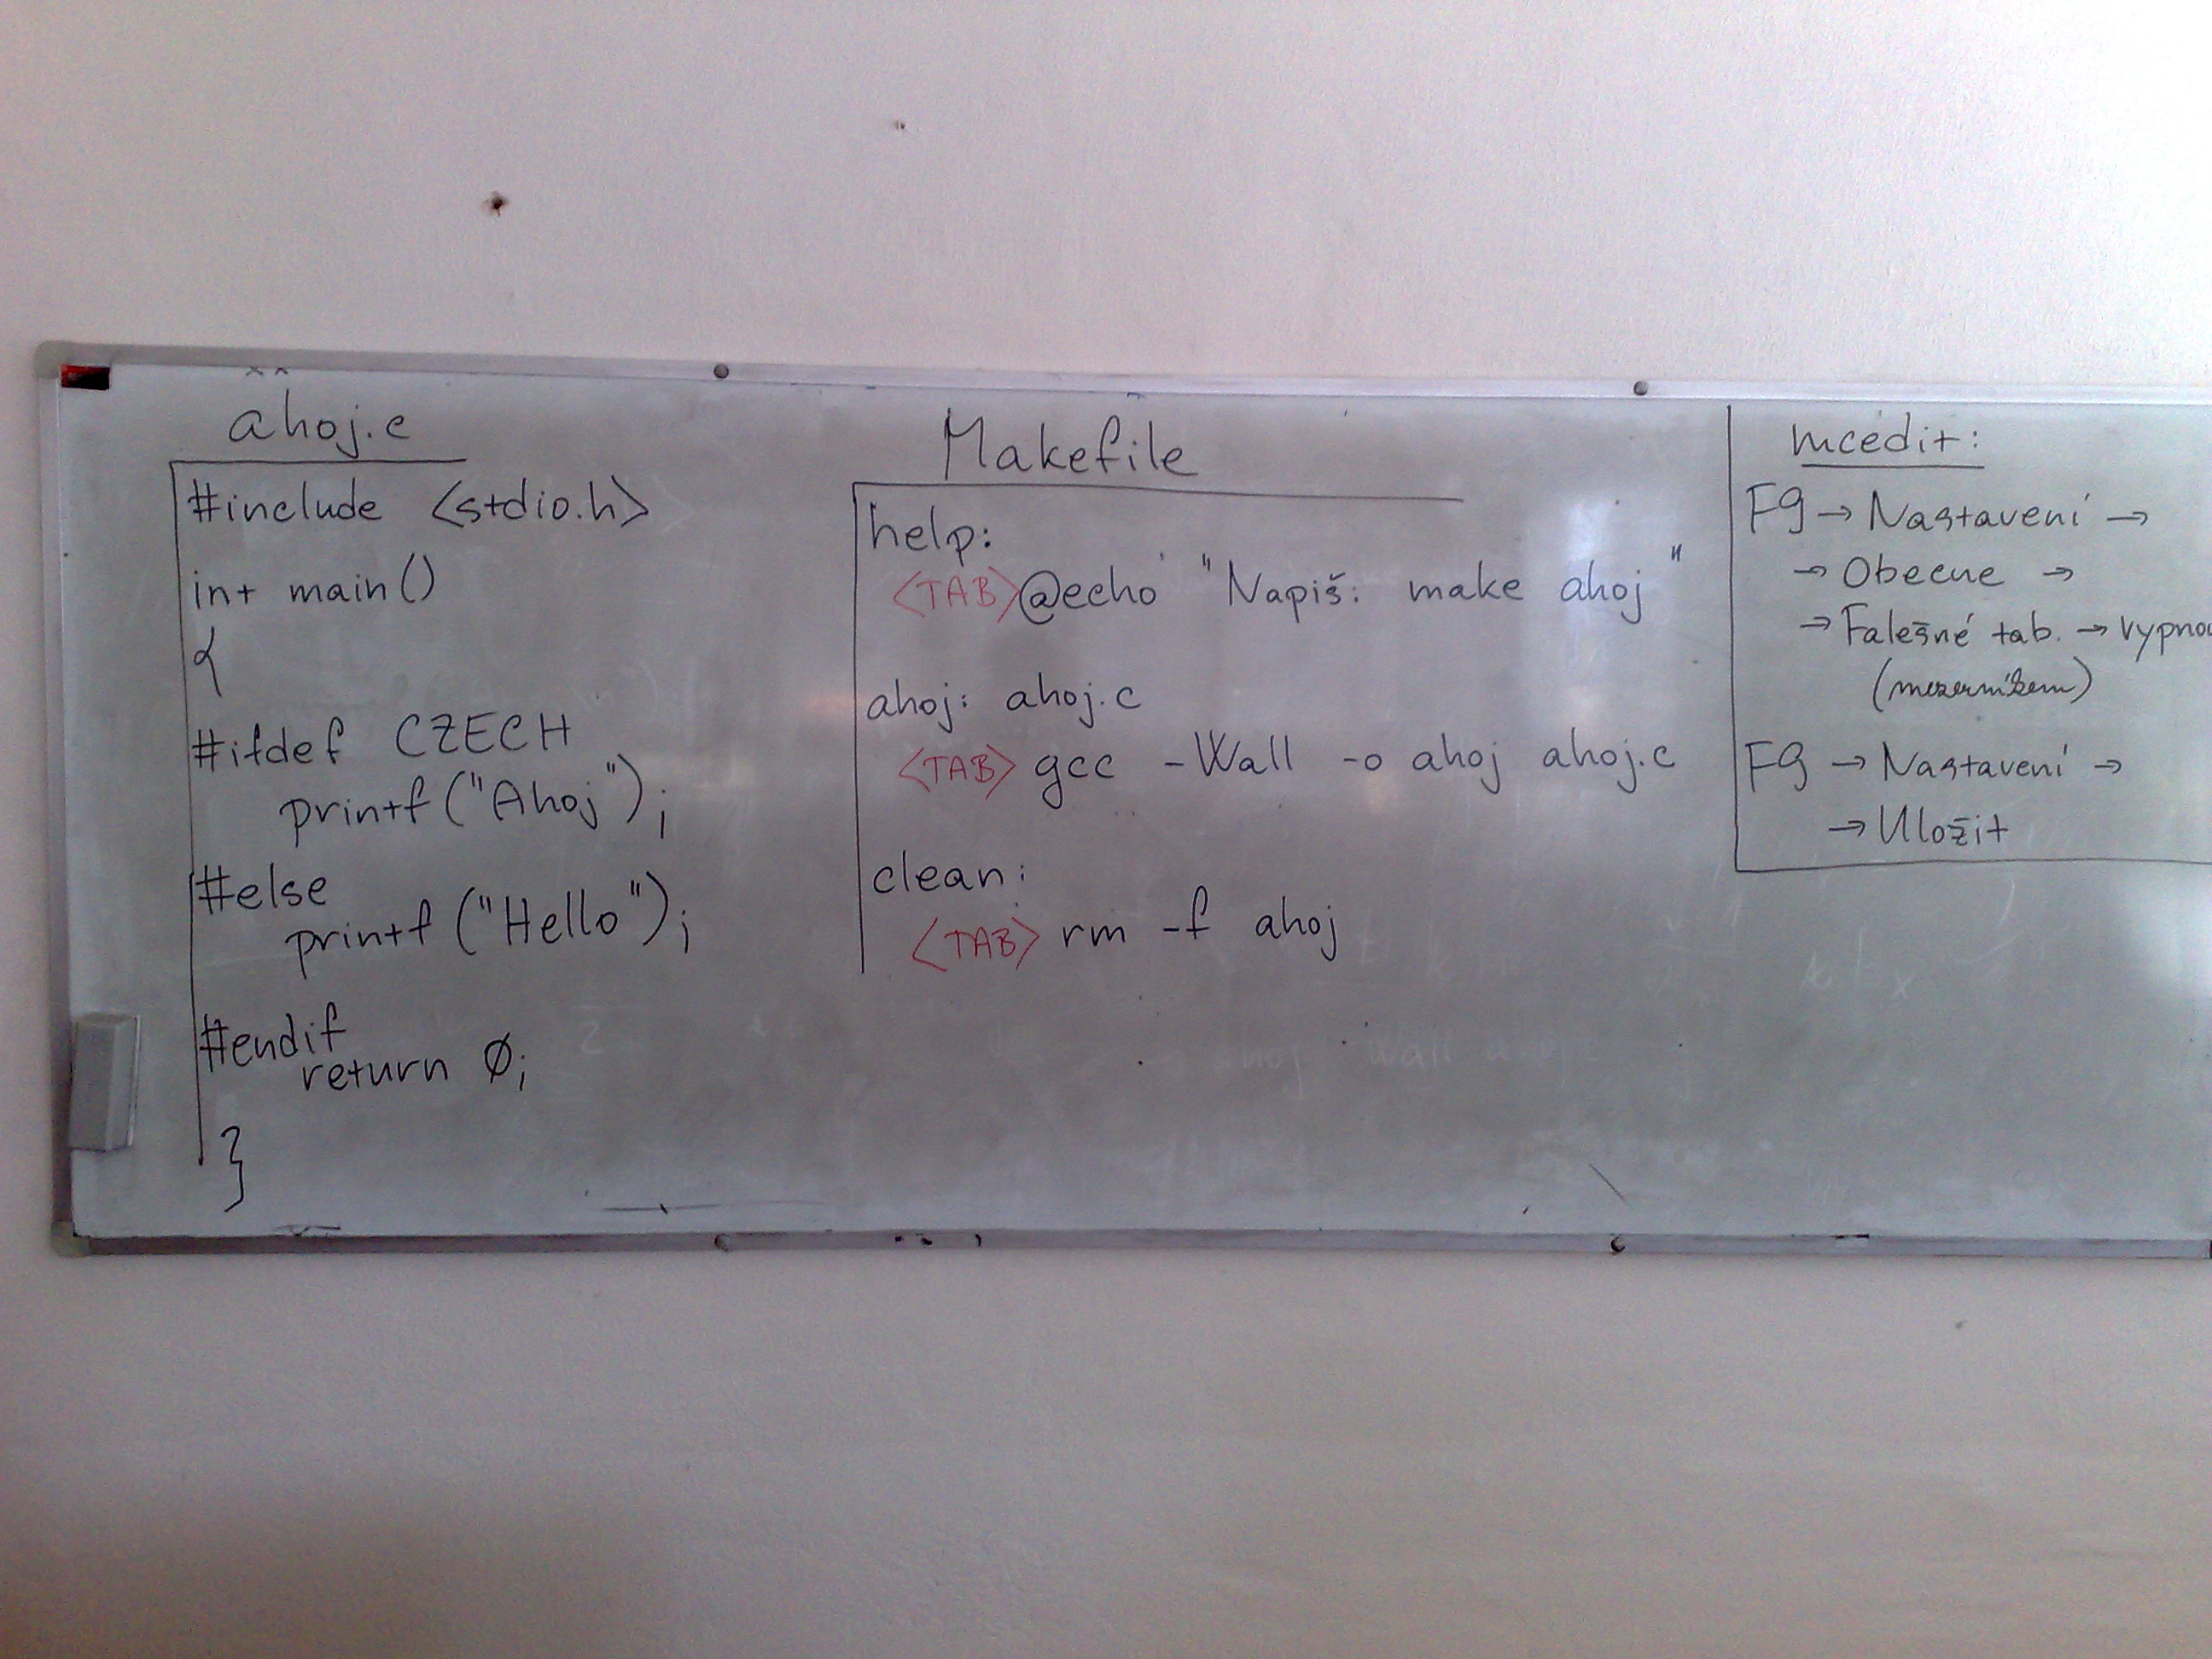 ahoj.c
#include <stdio.h>
int main()
{
#ifdef CZECH
printf("Ahoj");
#else
printf("Hello");
#endif
return 0;
}
Makefile
help:
<TAB>@echo "Napiš: make ahoj"
ahoj: ahoj.c
<TAB> gcc -Wall -o ahoj ahoj.c
clean:
<TAB> rm -f ahoj
mcedit:
F9 → Nastavení →
→ Obecne →
→ Falešné tab. → vypnou
(mezerníkem)
F9 → Nastavení →
→ Uložit